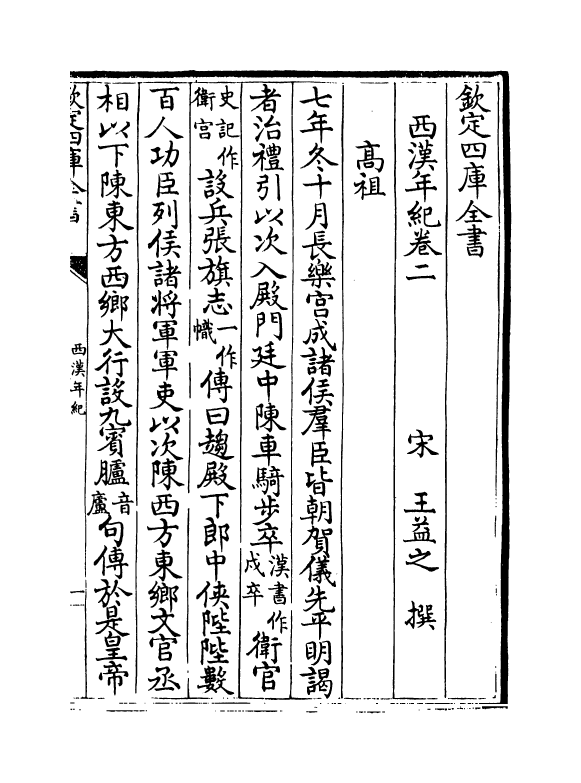 欽定四庫全書
西漢年紀卷二　　　宋　王益之　撰
高祖
七年冬十月長樂宫成諸侯羣臣皆朝賀儀先平明謁
者治禮引以次入殿門廷中陳車騎步卒漢書作戍卒衛官
史記作衛宫設兵張旗志一作幟傳曰趨殿下郎中俠陛陛數
百人功臣列侯諸將軍軍吏以次陳西方東鄉文官丞
相以下陳東方西鄉大行設九賓臚音廬句傳於是皇帝
欽定四庫全書
西漢年紀
一